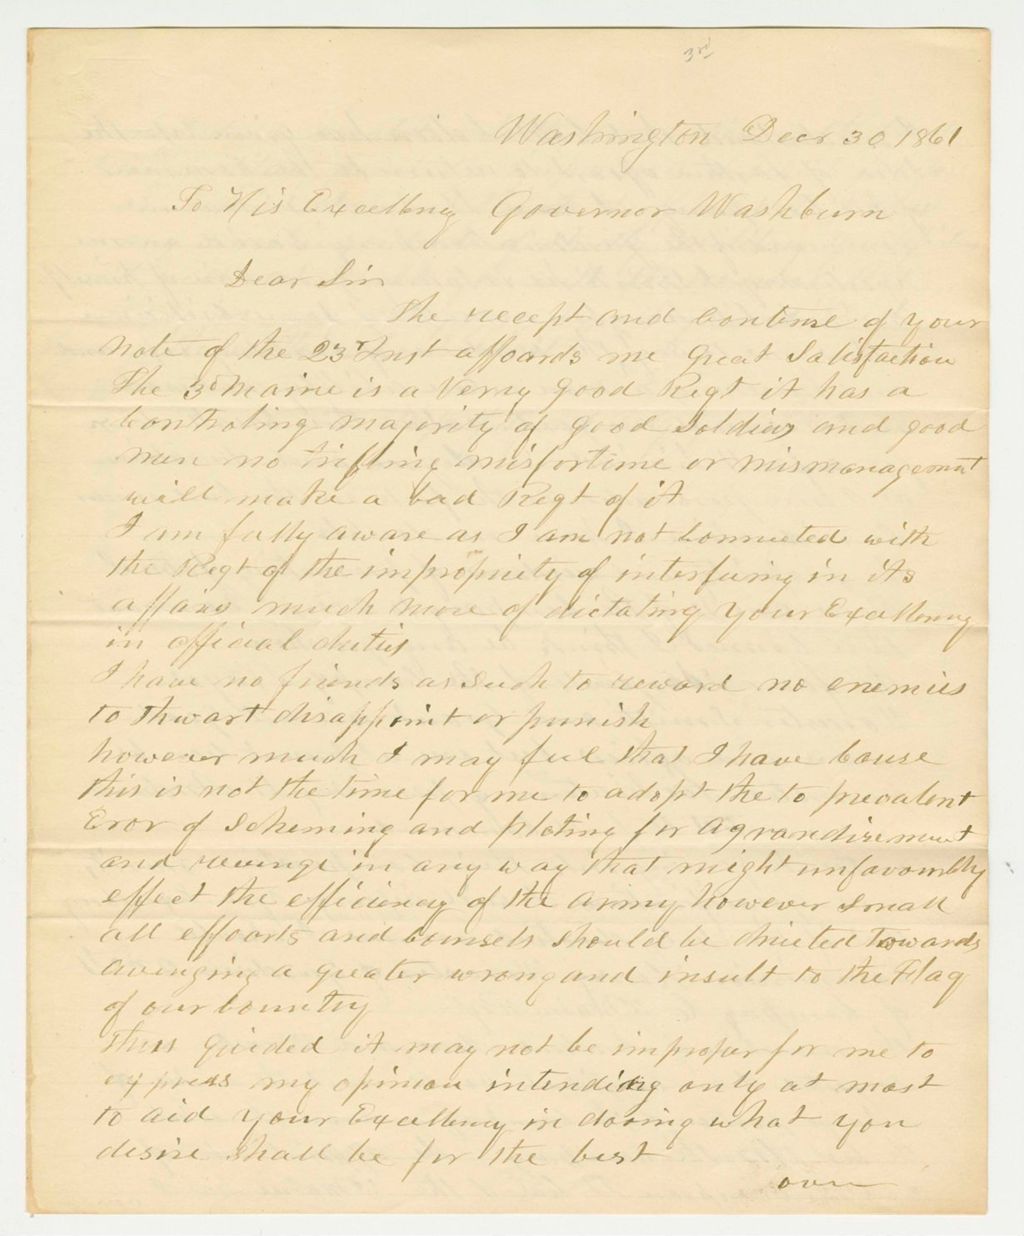 3rd
Washington Decr 30 1861
To His Excellency Governor Washburn
Dear Sir
The recept and contense of your
note of the 23d Inst affoards me great Satisfaction
The 3d Maine is a Verry good Regt it has a
controling majority of good Soldiers and good
men no trifling misfortune or mismanagement
will make a bad Regt of it
I am fully aware as I am not connected with
the Regt of the impropriety of interfering in its
affairs much more of dictating your Excellency
in official duties
I have no friends as such to reward no enemies
to thwart disappoint or punish
however much I may feel that I have cause
this is not the time for me to adopt the to prevalent
Eror of Scheming and ploting for agrandisement
and revenge in any way that might unfavorably
effect the efficiency of the army however small
all effoarts and counsels should be directed Towards
avenging a greater wrong and insult to the Flag
of our country
Thus guided it may not be improper for me to
express my opinion intending only at most
to aid your Excellency in doing what you
desire shall be for the best
over